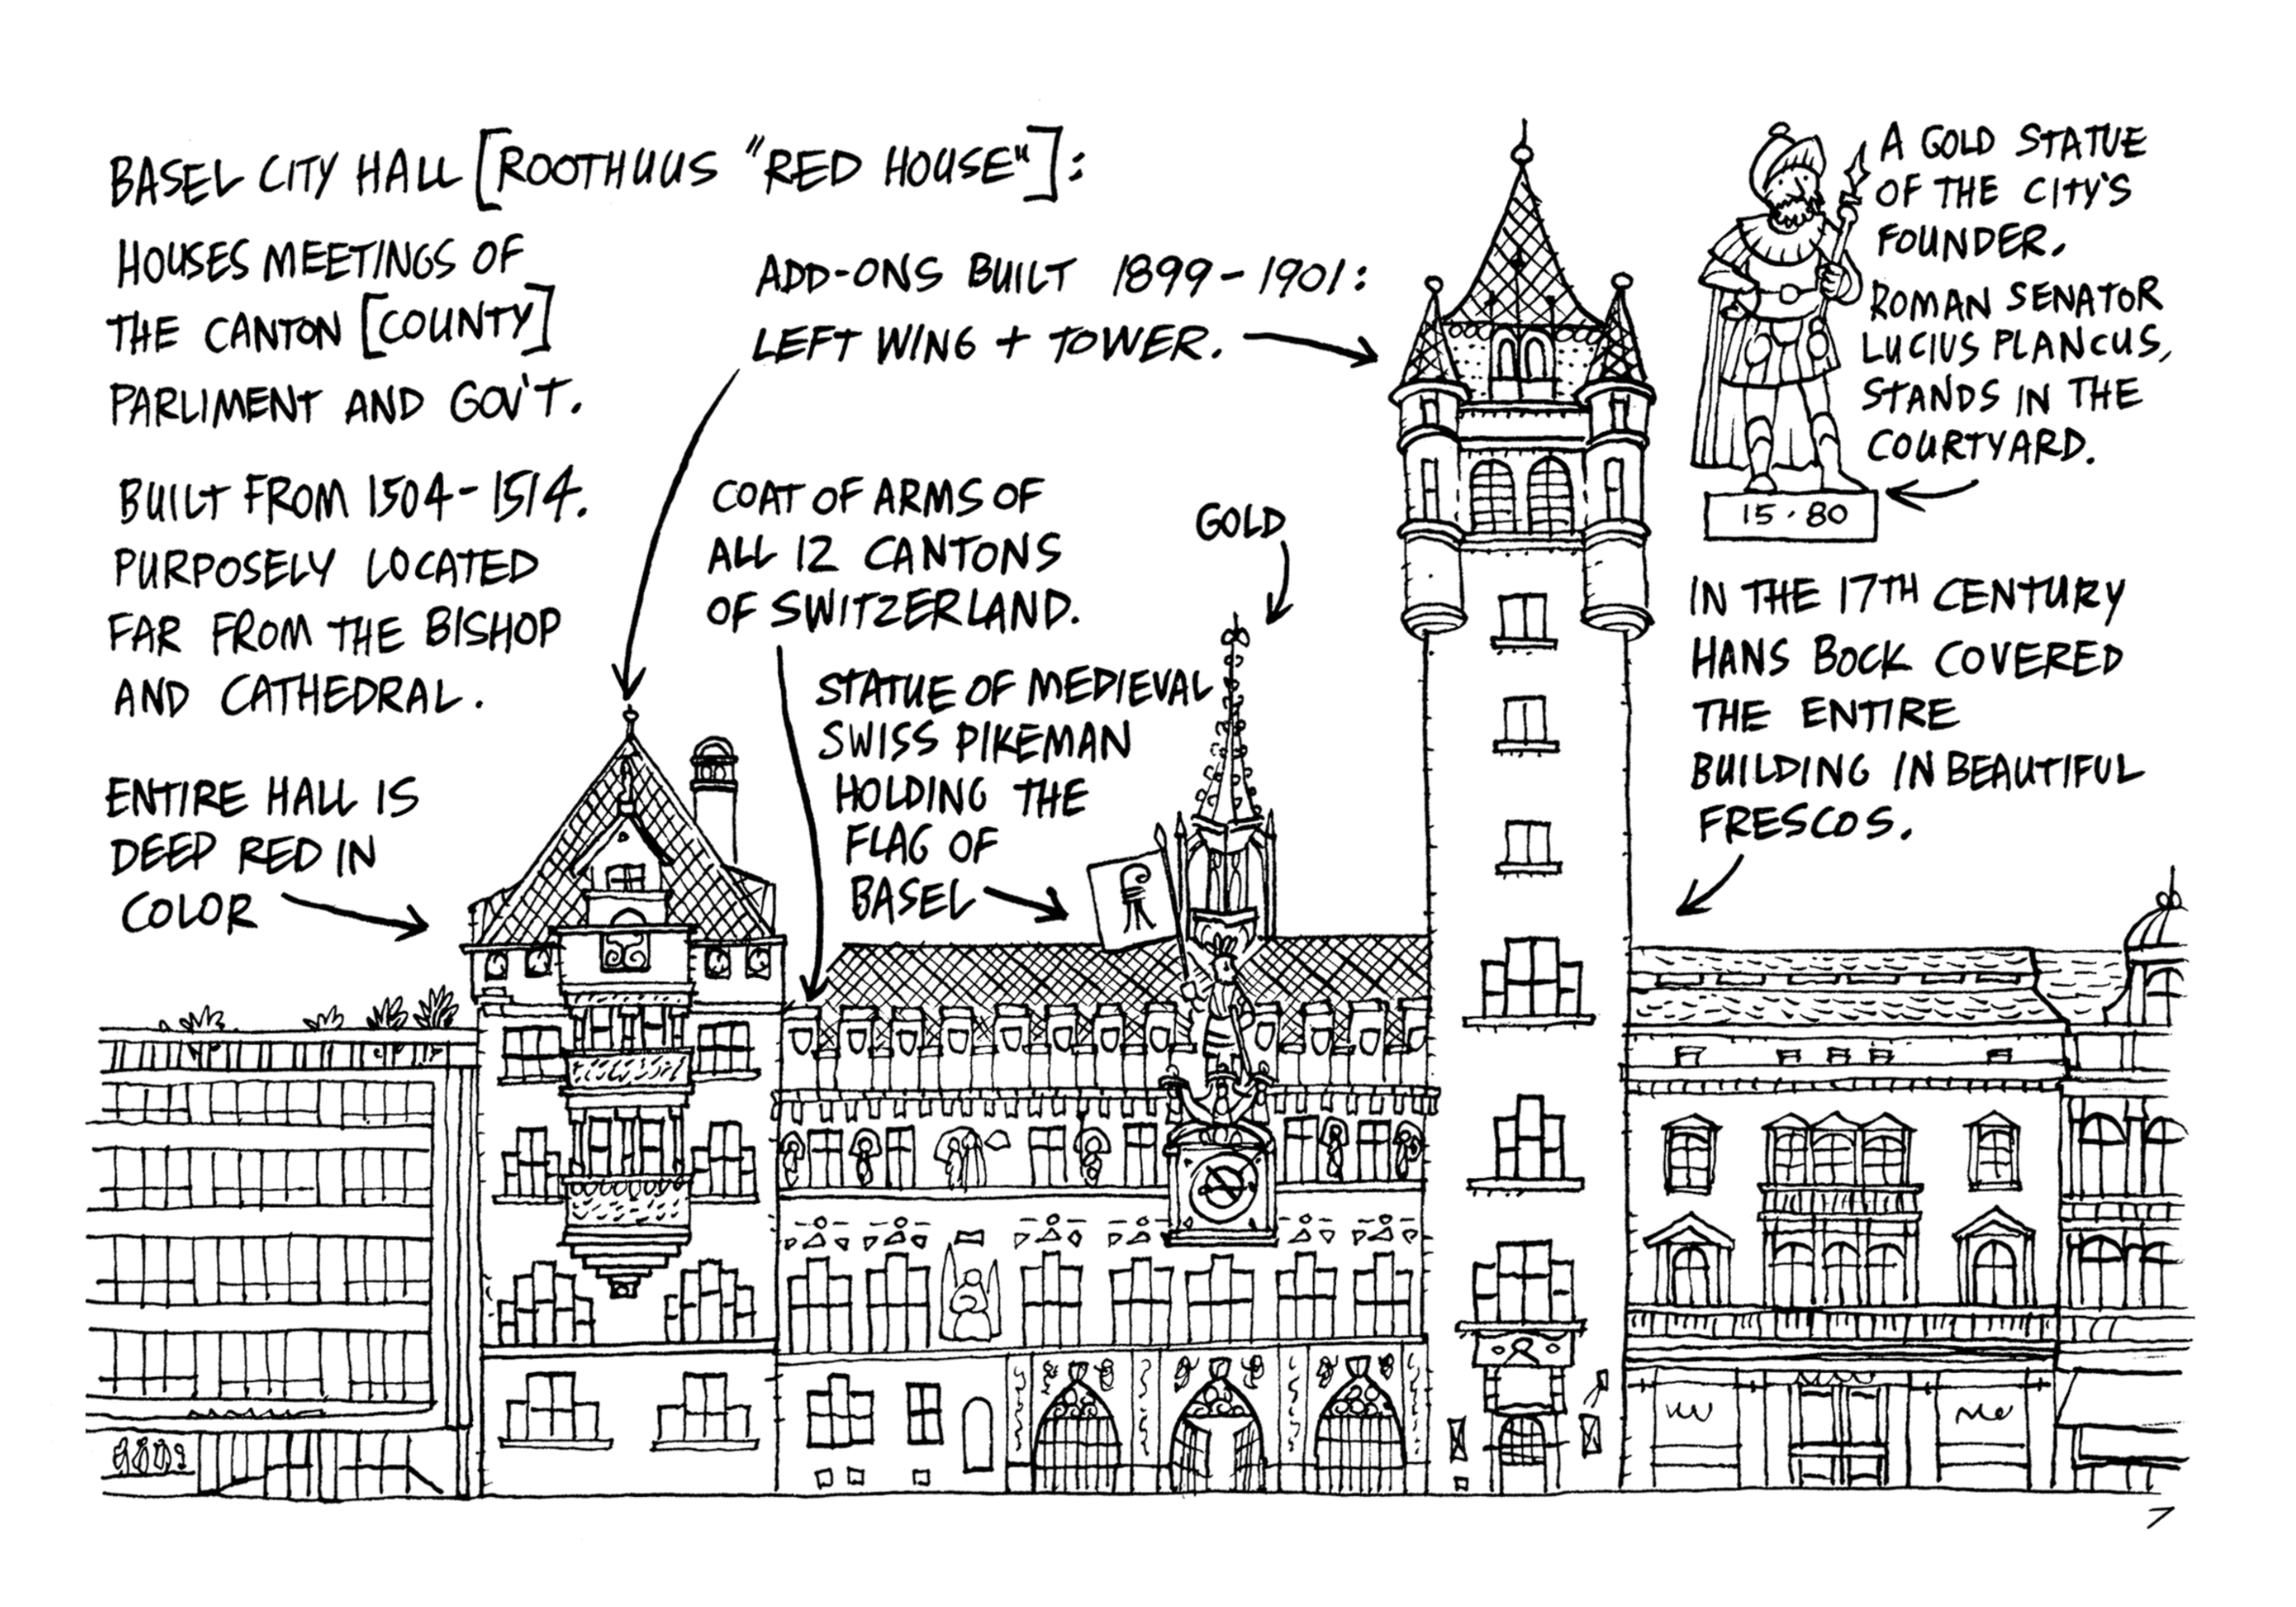 BASEL CITY HALL [ROOTHUUS "RED HOUSE"]:
HOUSES MEETINGS OF
THE CANTON [COUNTY]
PARLIMENT AND GOV'T.
BUILT FROM 1504-1514.
PURPOSELY LOCATED
FAR FROM THE BISHOP
AND CATHEDRAL.
ENTIRE HALL IS
DEEP RED IN
COLOR
ADD-ONS BUILT 1899-1901:
LEFT WING + TOWER.
COAT OF ARMS OF
ALL 12 CANTONS
OF SWITZERLAND.
STATUE OF MEDIEVAL
SWISS PIKEMAN
HOLDING THE
FLAG OF
BASEL
GOLD
A GOLD STATUE
OF THE CITY'S
FOUNDER,
ROMAN SENATOR
LUCIUS PLANCUS,
STANDS IN THE
COURTYARD.
15·80
IN THE 17TH CENTURY
HANS BOCK COVERED
THE ENTIRE
BUILDING IN BEAUTIFUL
FRESCOS.
7